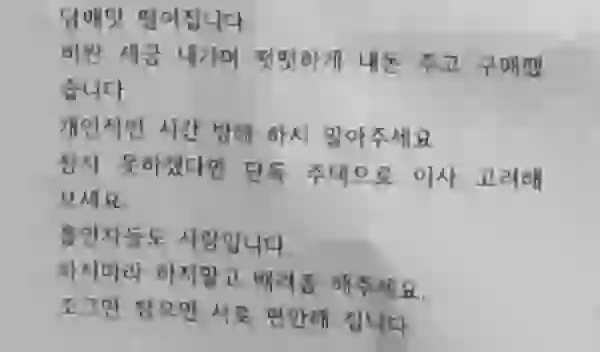 담배맛 떨어집니다
비싼 세금 내가며 떳떳하게 내돈 주고 구매했
습니다
개인적인 시간 방해 하지 말아주세요
참지 못하겠다면 단독 주택으로 이사 고려해
보세요.
흡연자들도 사람입니다.
하지마라 하지말고 배려좀 해주세요.
조그만 참으면 서로 편안해 집니다